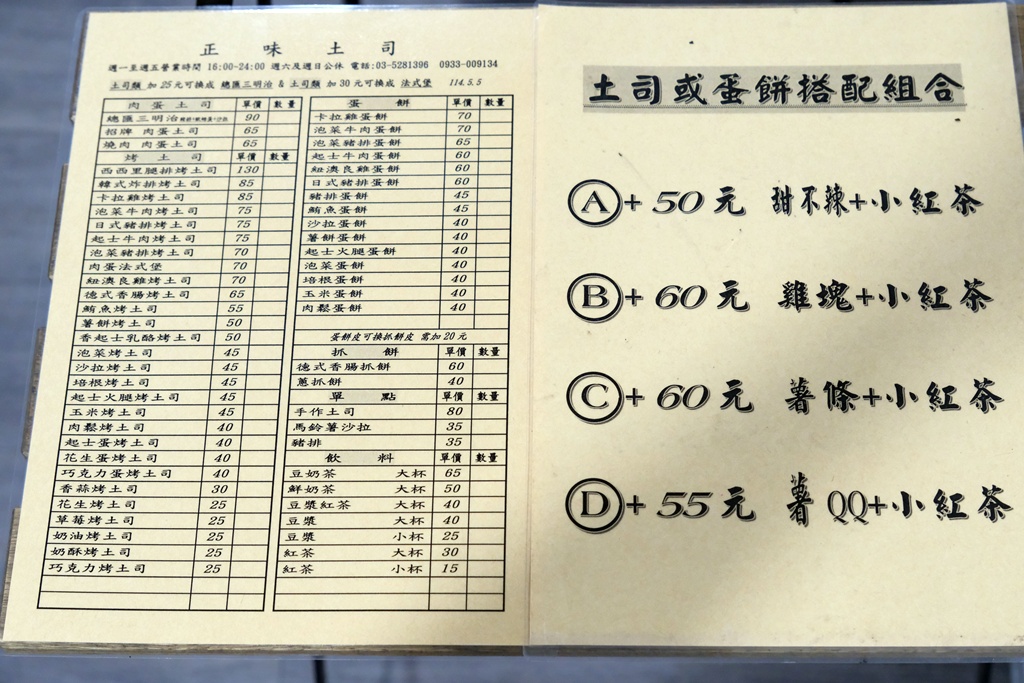 正味土司
週一至週五營業時間 16:00-24:00 週六及週日公休 電話:03-5281396 0933-009134
土司類 加 25元可換成 總匯三明治 & 土司類 加 30元可換成 法式堡 114.5.5
肉蛋土司 單價 數量
總匯三明治 90
招牌 肉蛋土司 65
燒肉 肉蛋土司 65
烤土司 單價 數量
西西里腿排烤土司 130
韓式炸排烤土司 85
卡拉雞烤土司 85
泡菜牛肉烤土司 75
日式豬排烤土司 75
起士牛肉烤土司 75
泡菜豬排烤土司 70
肉蛋法式堡 70
紐澳良雞烤土司 70
德式香腸烤土司 65
鮪魚烤土司 55
薯餅烤土司 50
香起士乳酪烤土司 50
泡菜烤土司 45
沙拉烤土司 45
培根烤土司 45
起士火腿烤土司 45
玉米烤土司 45
肉鬆烤土司 40
起士蛋烤土司 40
花生蛋烤土司 40
巧克力蛋烤土司 40
香蒜烤土司 30
花生烤土司 25
草莓烤土司 25
奶油烤土司 25
奶酥烤土司 25
巧克力烤土司 25
蛋餅 單價 數量
卡拉雞蛋餅 70
泡菜牛肉蛋餅 70
泡菜豬肉蛋餅 65
起士牛肉蛋餅 60
紐澳良雞蛋餅 60
日式豬排蛋餅 60
豬排蛋餅 45
鮪魚蛋餅 45
沙拉蛋餅 40
薯餅蛋餅 40
起士火腿蛋餅 40
泡菜蛋餅 40
培根蛋餅 40
玉米蛋餅 40
肉鬆蛋餅 40
蛋餅皮可換抓餅皮 需加20元
抓餅 單價 數量
德式香腸抓餅 60
蔥抓餅 40
單點 單價 數量
手作土司 80
馬鈴薯沙拉 35
豬排 35
飲料 單價 數量
豆奶茶 大杯 65
鮮奶茶 大杯 50
豆漿紅茶 大杯 40
豆漿 大杯 40
豆漿 小杯 25
紅茶 大杯 30
紅茶 小杯 15
土司或蛋餅搭配組合
Ⓐ+50元 甜不辣+小紅茶
Ⓑ+60元 雞塊+小紅茶
Ⓒ+60元 薯條+小紅茶
Ⓓ+55元 薯QQ+小紅茶